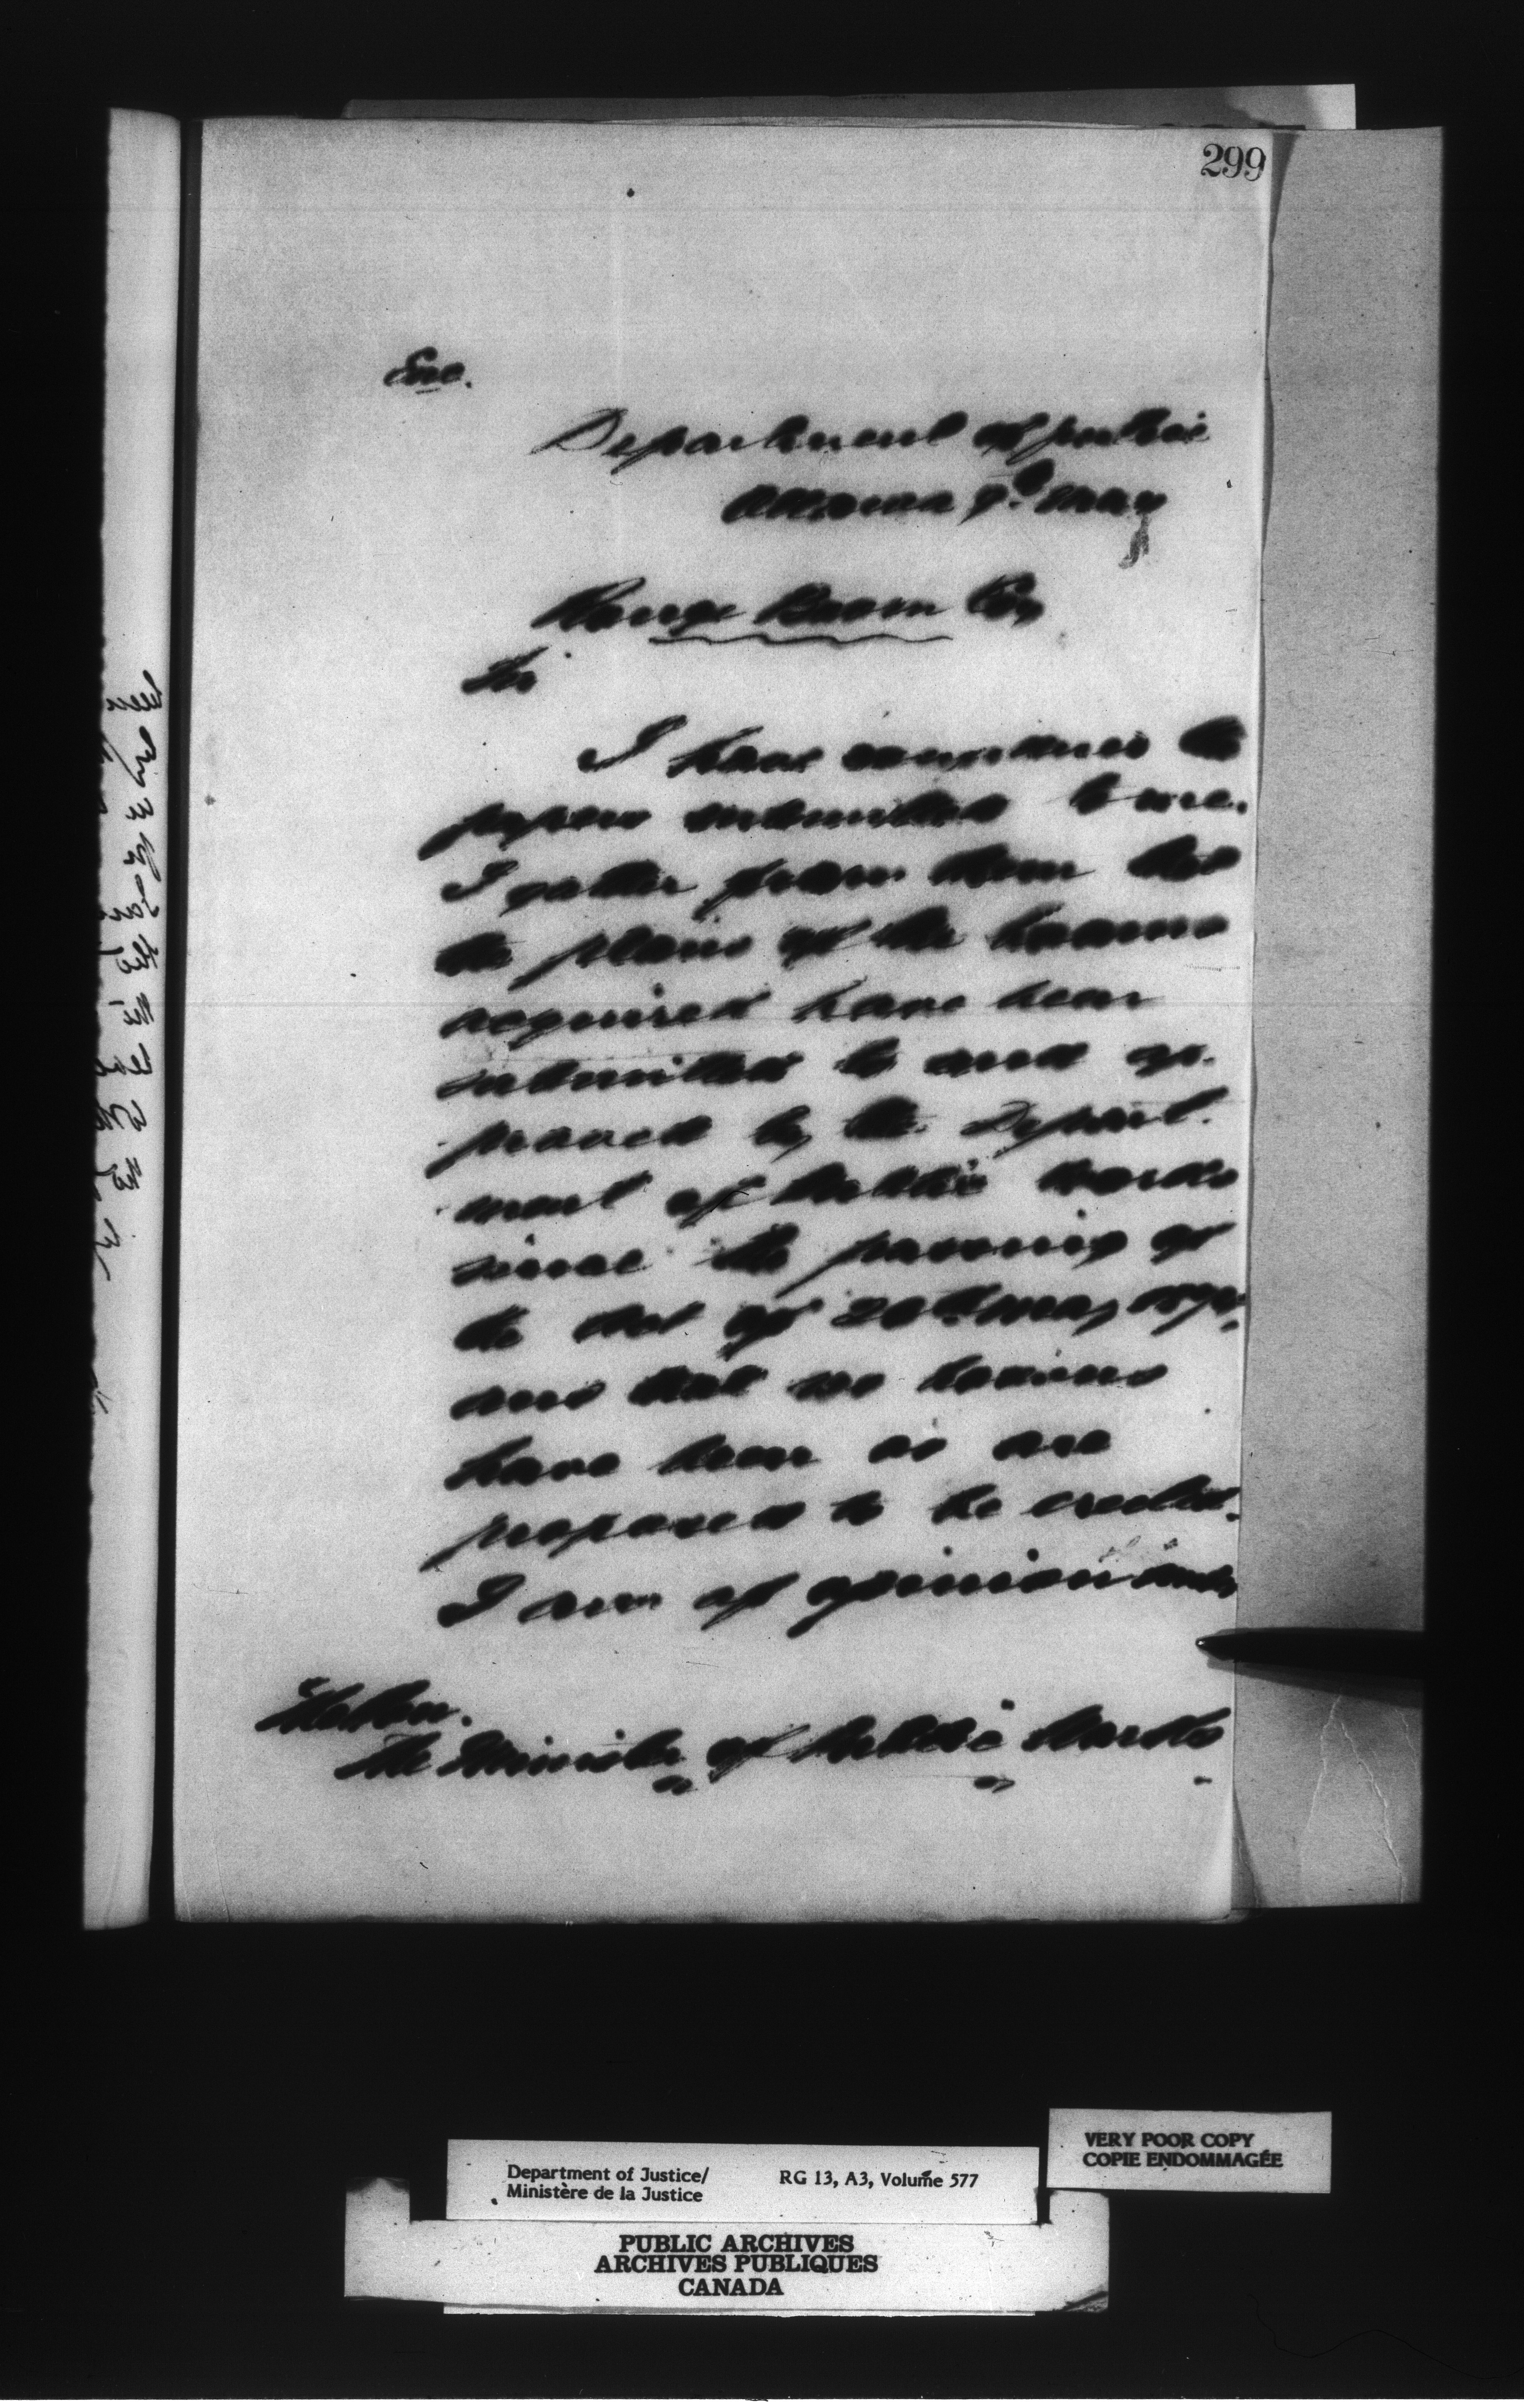 299
Enc.
Department of Justice
Ottawa 9th May
Boom Co
Sir
I have considered the
papers submitted to me.
I gather from them that
the plans of the booms
acquired have been
submitted to and ap-
proved by the Depart-
ment of Public Works
since the passing of
the Act of 20th May
and that no booms
have been or are
proposed to be erected.
I am of opinion under
The Hon.
The Minister of Public Works
Department of Justice/ RG 13, A3, Volume 577
Ministère de la Justice
VERY POOR COPY
COPIE ENDOMMAGÉE
PUBLIC ARCHIVES
ARCHIVES PUBLIQUES
CANADA